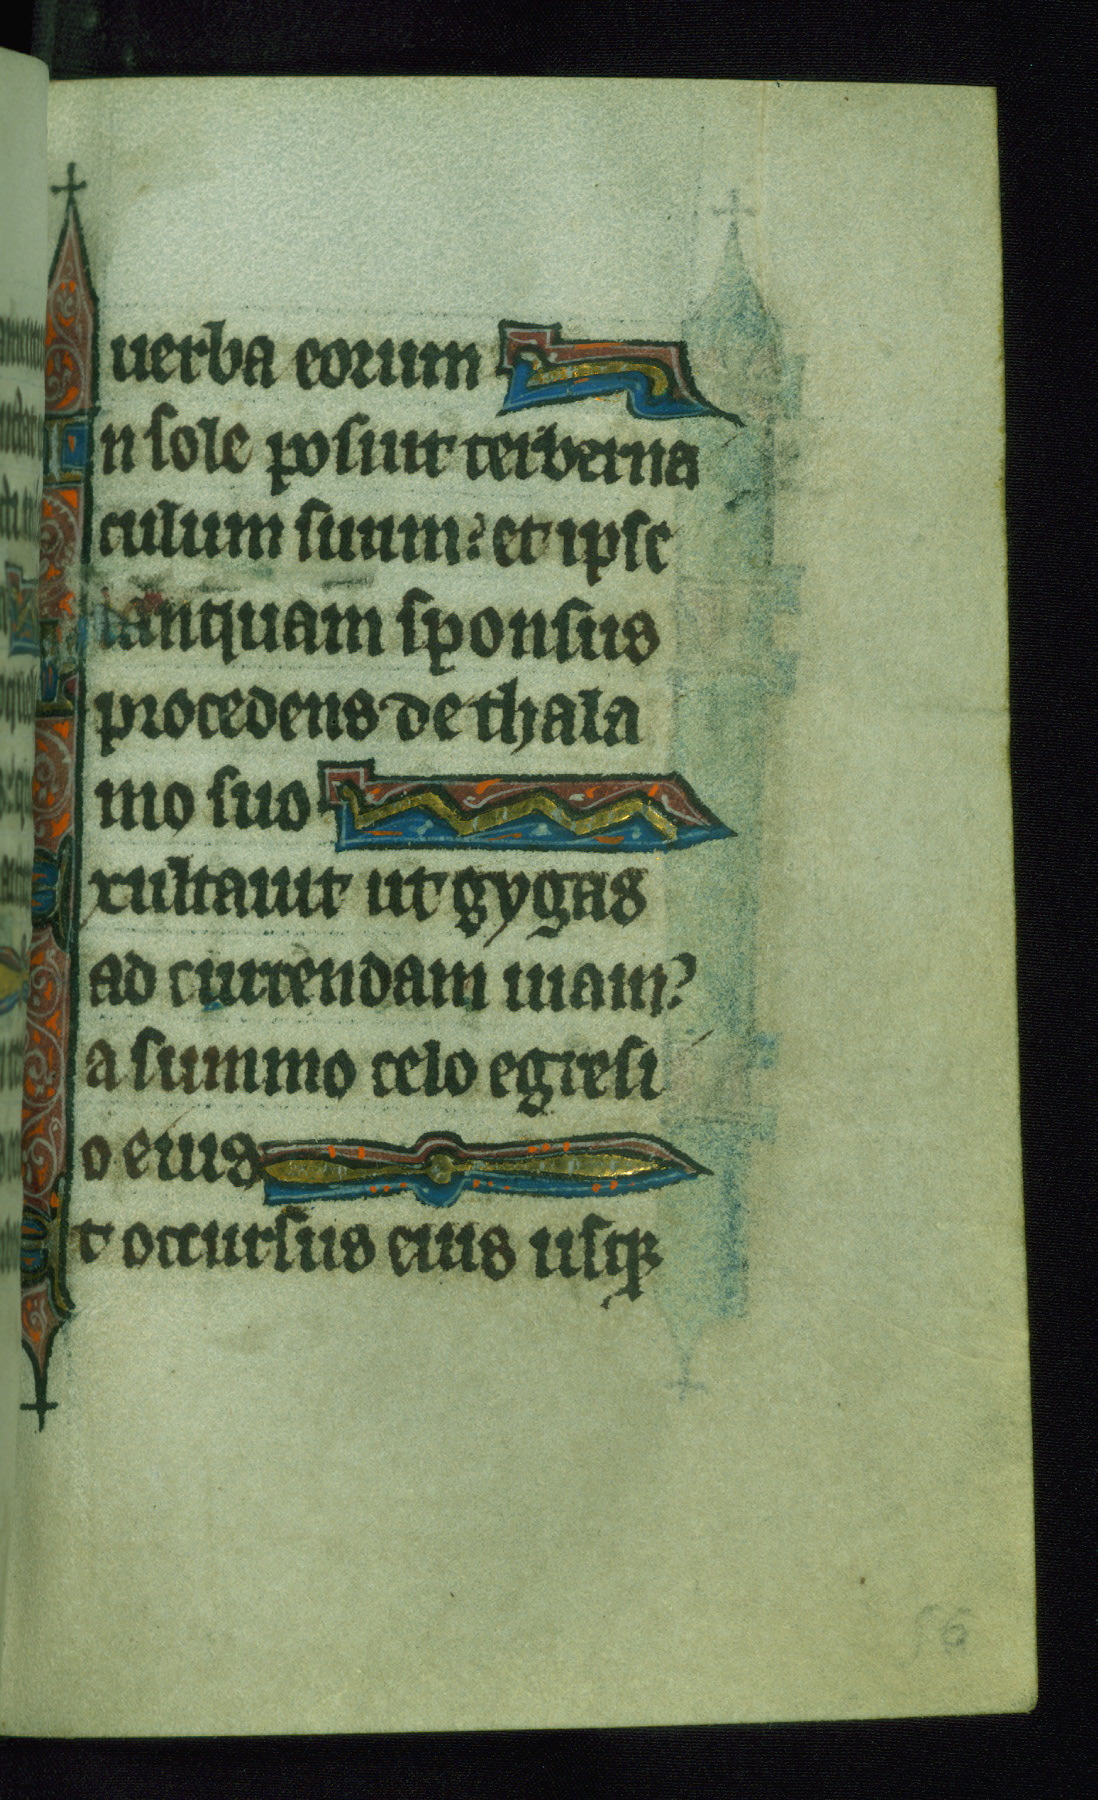 uerba eorum
n sole posuit terberna
culum suum: et ipse
tanquam sponsus
procedens de thala
mo suo
xultauit ut gygas
ad currendam uiam:
a summo celo egresi
o eius
t occursus eius usq;
56